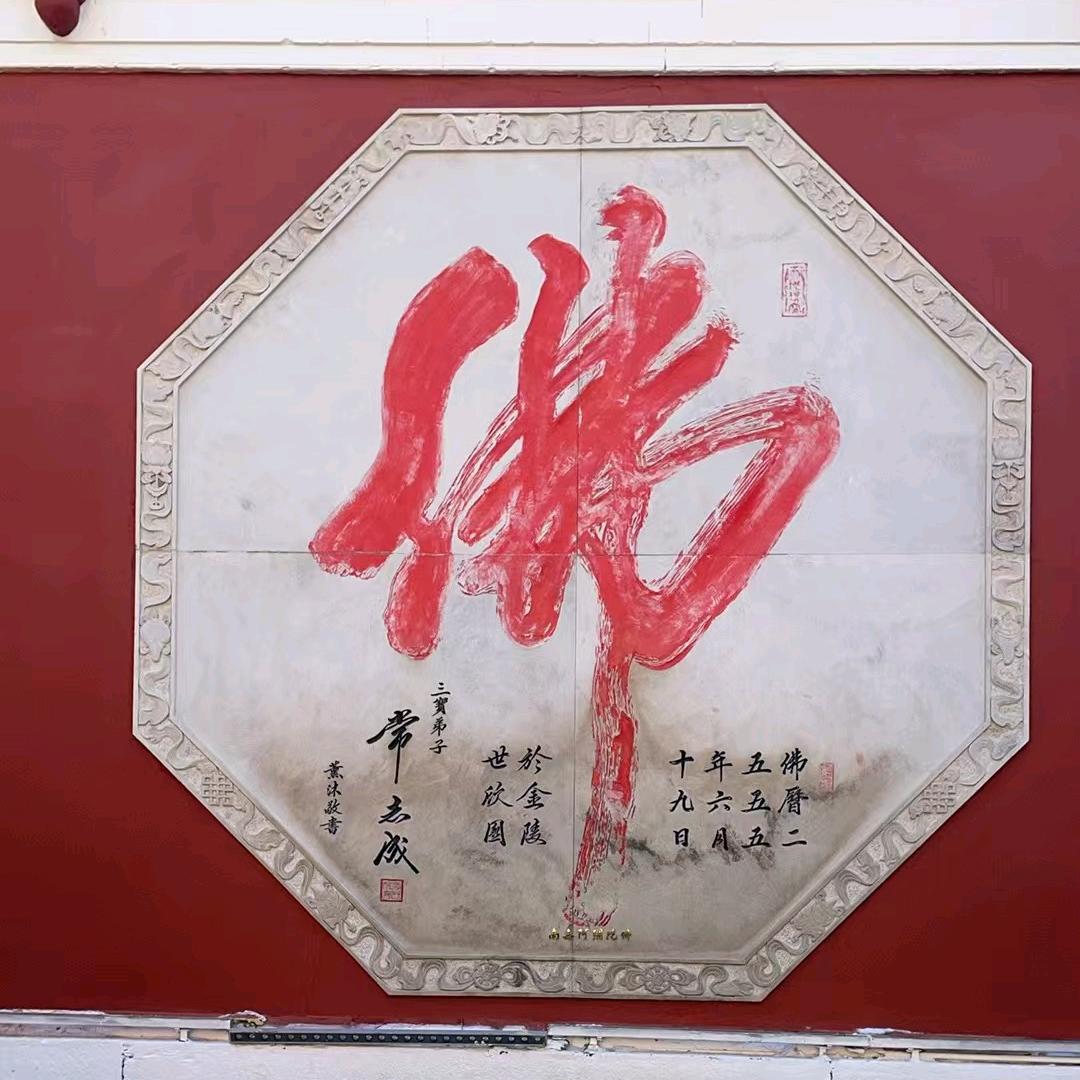 佛
佛曆二
五五五
年六月
十九日
於金陵
世欣園
三寶弟子
常志成
薰沐敬書
南无阿彌陀佛